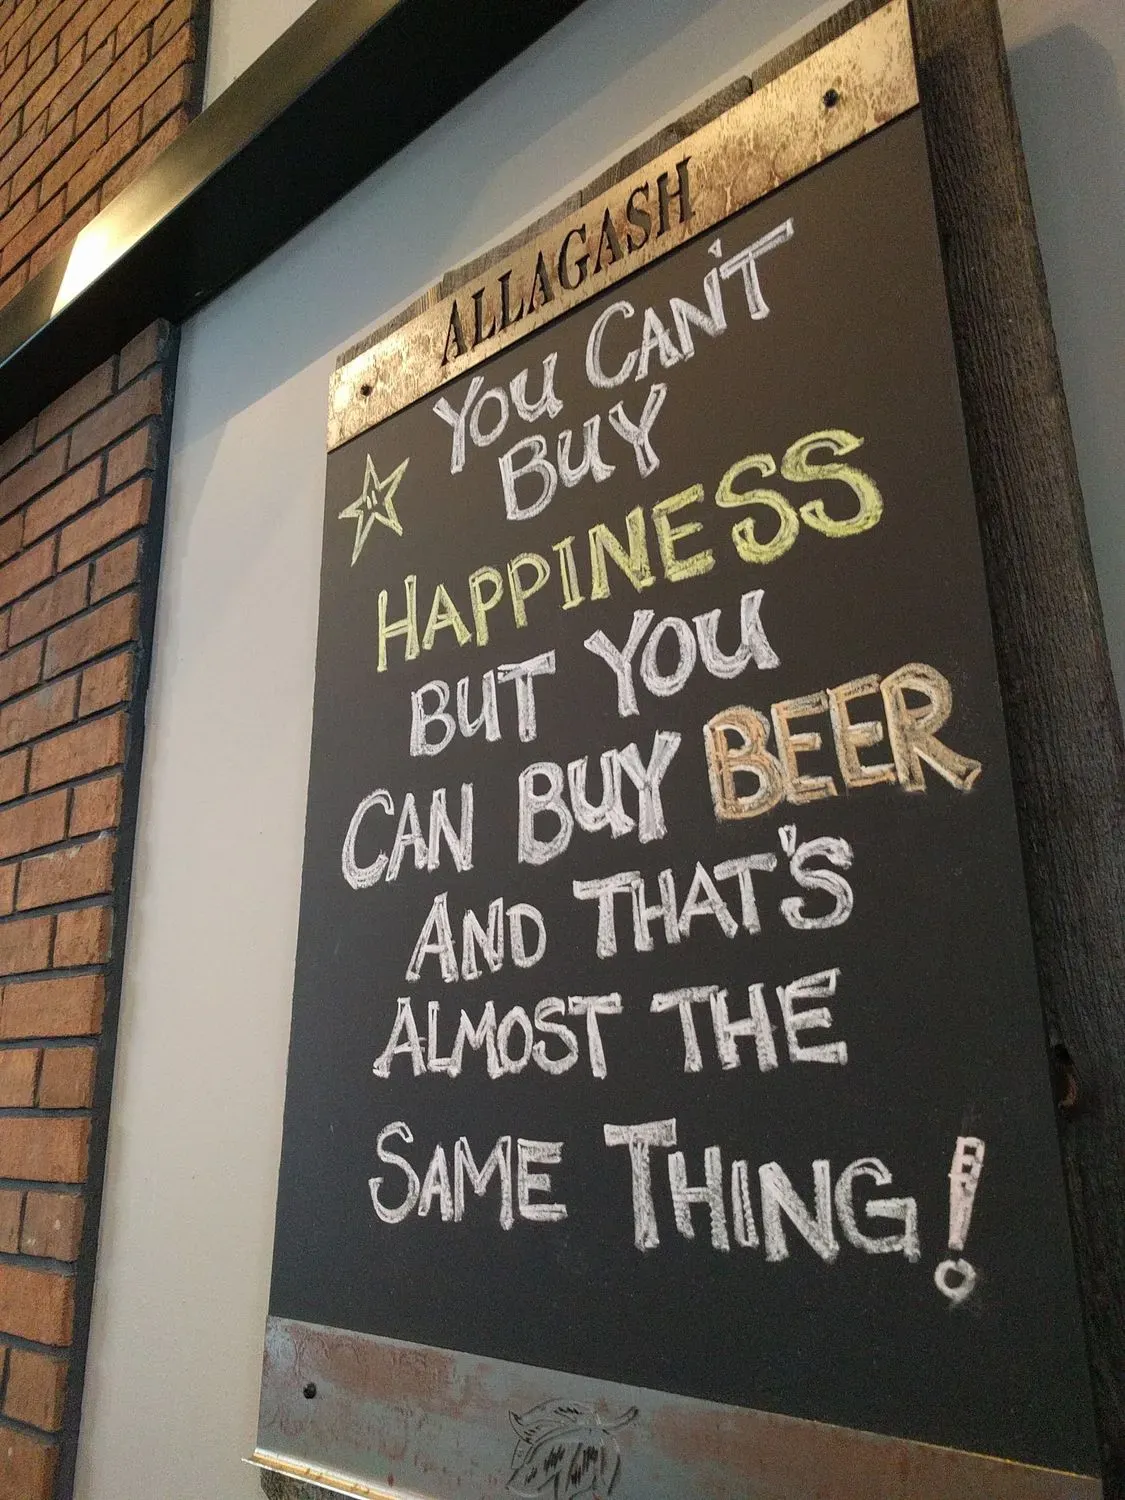 ALLAGASH
YOU CAN'T
BUY
HAPPINESS
BUT YOU
CAN BUY BEER
AND THAT'S
ALMOST THE
SAME THING!